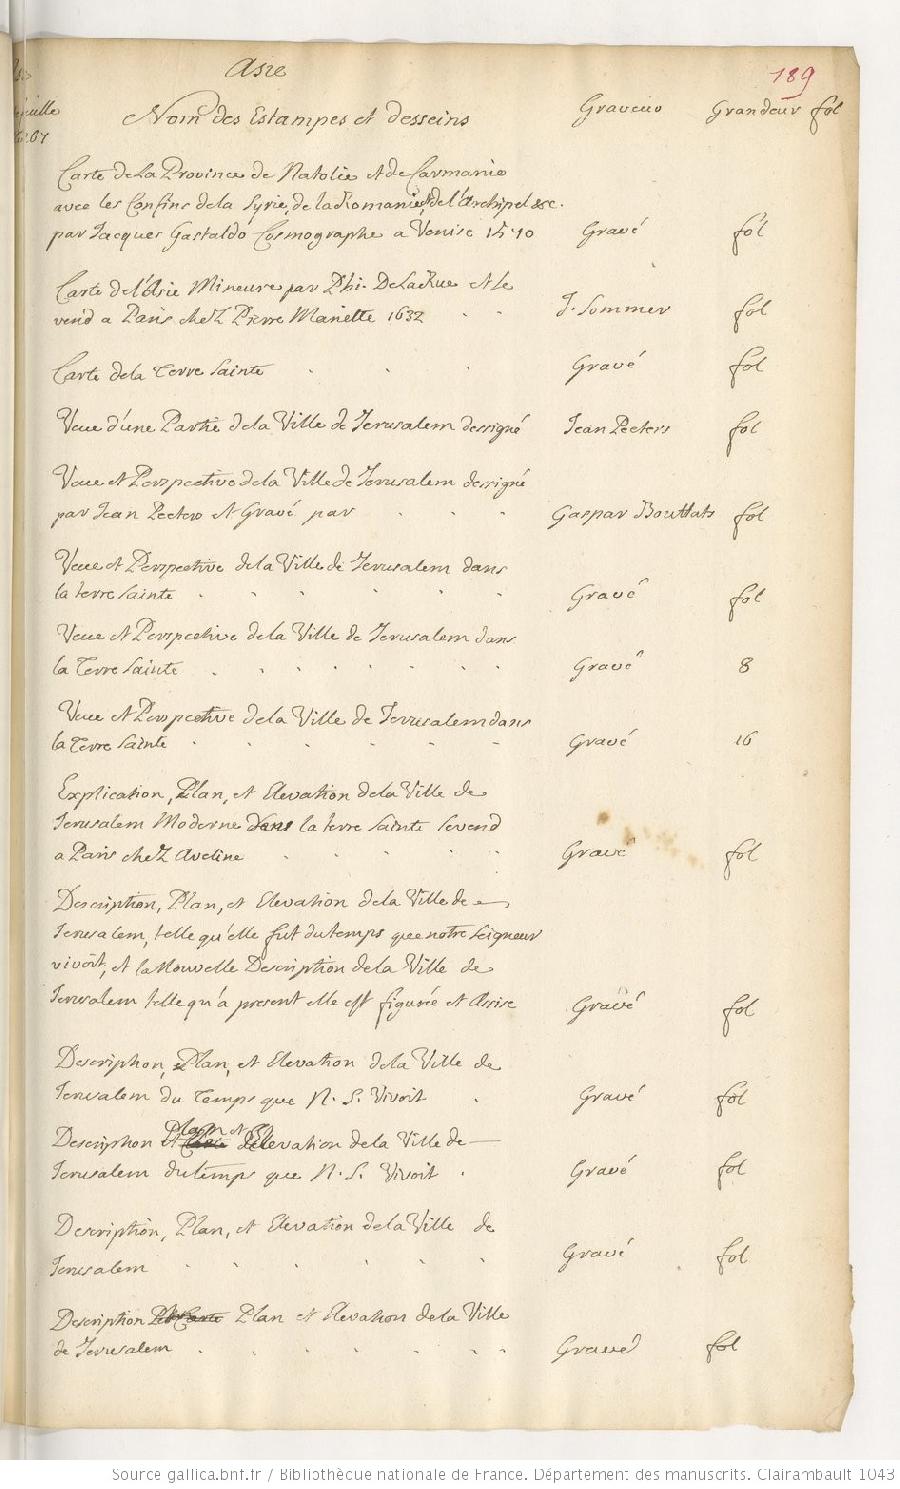 Asie
189
Nom des Estampes et desseins Graveur Grandeur fol
Carte de La Province de Natolie et de Carmanie
avec les Confins de la Syrie, de la Romanie, et de l'Archipel &c.
par Jacques Gastaldo Cosmographe a Venise Gravé fol
Carte de l'Asie Mineure par Phi. De La Rue et se
vend a Paris chez Pierre Mariette 1632 J. Sommer fol
Carte de la Terre Sainte Gravé fol
Veue d'une Partie de la Ville de Jerusalem dessigné Jean Peeters fol
Veue et Perspective de la Ville de Jerusalem dessigné
par Jean Peeters et Gravé par Gaspar Bouttats fol
Veue et Perspective de la Ville de Jerusalem dans
la terre Sainte Gravé fol
Veue et Perspective de la Ville de Jerusalem dans
la Terre Sainte Gravé 8
Veue et Perspective de la Ville de Jerusalem dans
la Terre Sainte Gravé 16
Explication, Plan, et Elevation de la Ville de
Jerusalem Moderne Dans la terre Sainte se vend
a Paris chez Aveline Gravé fol
Description, Plan, et Elevation de la Ville de
Jerusalem, telle qu'elle fut du temps que notre Seigneur
vivoit, et la Nouvelle Description de la Ville de
Jerusalem telle qu'a present elle est figurée et Assise Gravé fol
Description, Plan, et Elevation de la Ville de
Jerusalem du Temps que N. S. Vivoit Gravé fol
Description Plan et Elevation de la Ville de
Jerusalem du temps que N. S. Vivoit Gravé fol
Description, Plan, et Elevation de la Ville de
Jerusalem Gravé fol
Description Plan et Elevation de la Ville
de Jerusalem Gravé fol
Source gallica.bnf.fr / Bibliothèque nationale de France. Département des manuscrits. Clairambault 1043